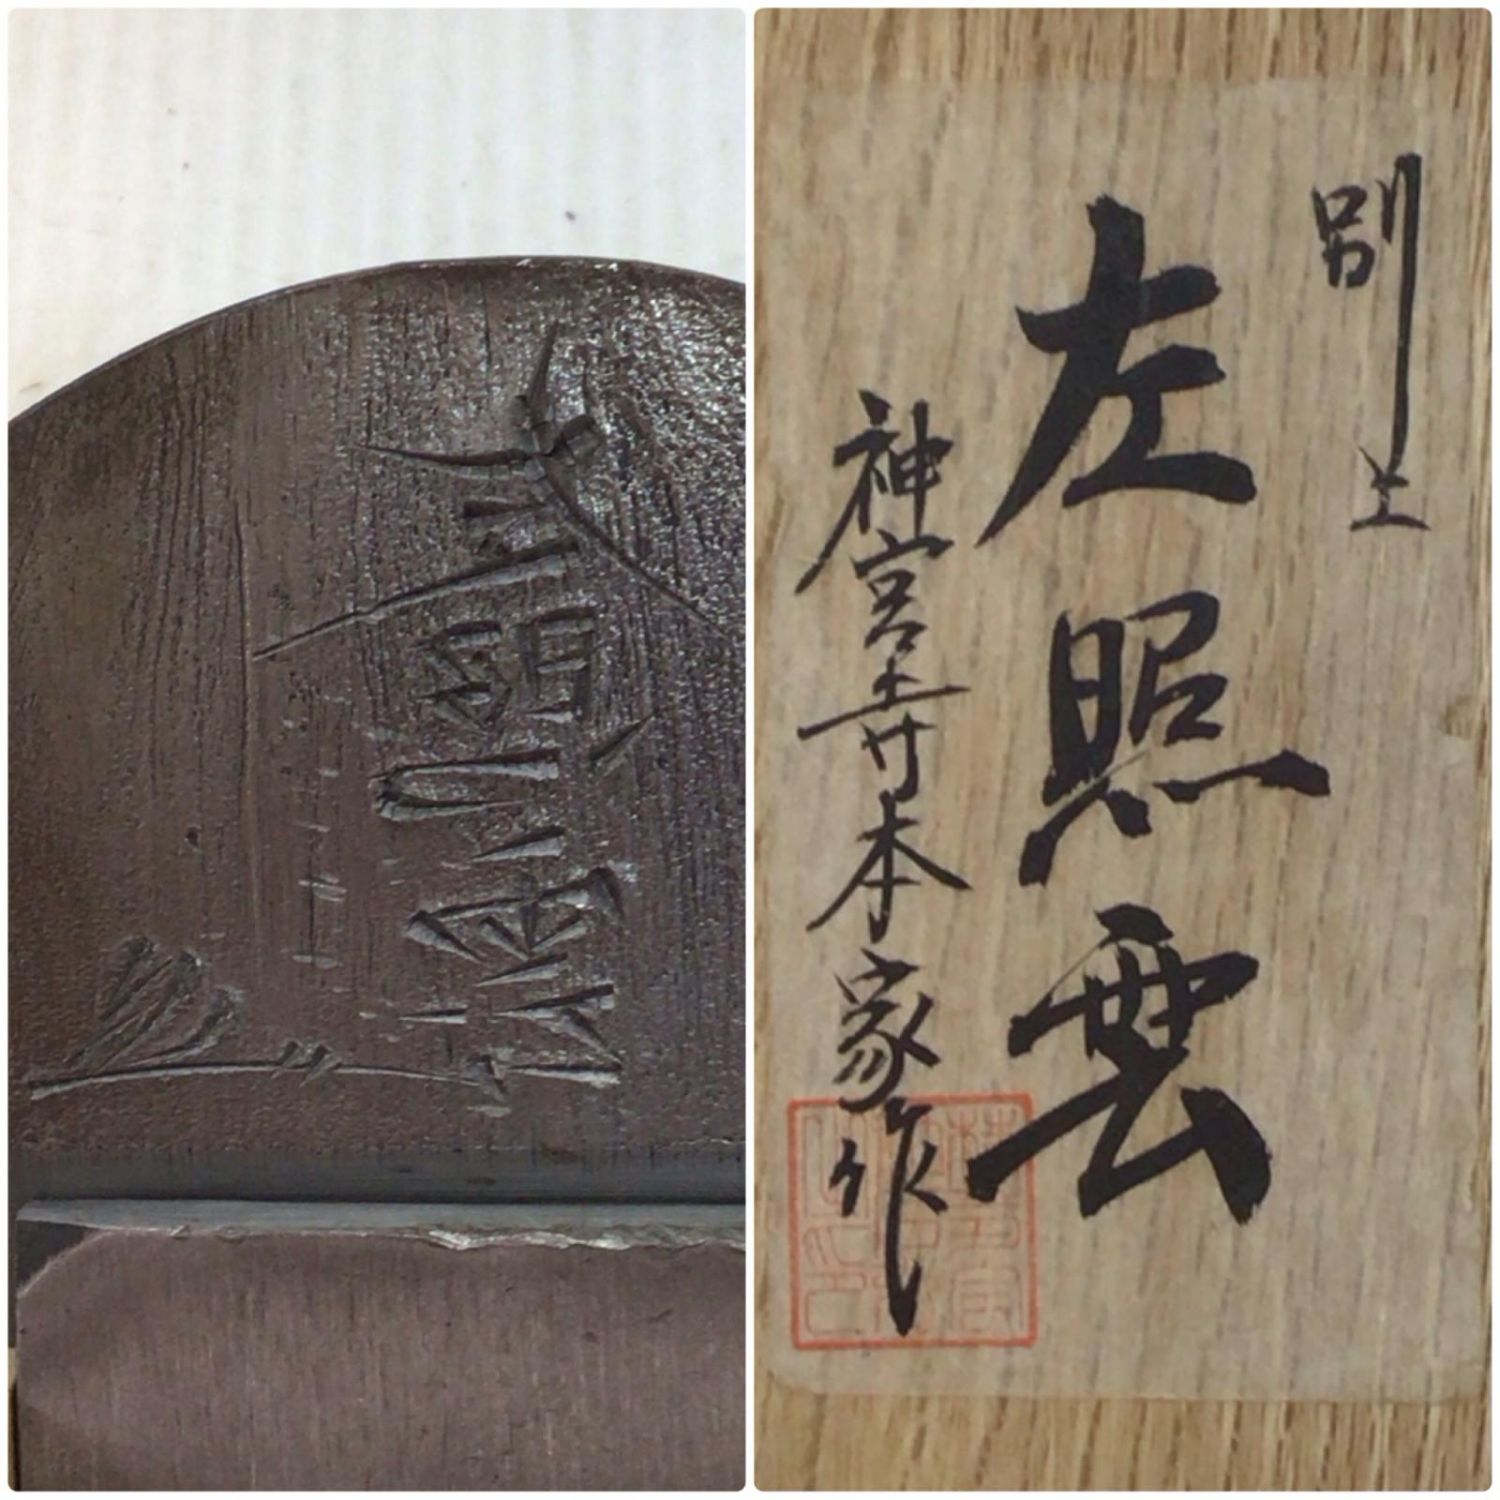 左照雲
別上
左照雲
神宮寺本家作